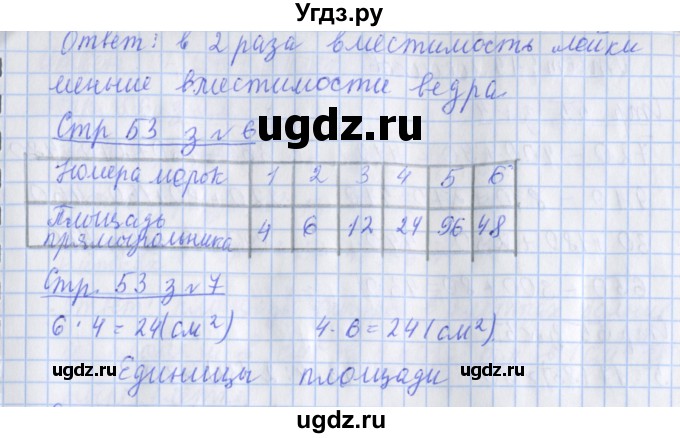 Угдз.ру
Ответ: в 2 раза вместимость лейки
меньше вместимости ведра
Стр 53 з № 6
ugdz.ru
Номера морок 1 2 3 4 5 6
Площадь прямоугольника 4 6 12 24 96 48
Стр. 53 з № 7
6 · 4 = 24 (см²) 4 · 6 = 24 (см²)
ugdz.ru Единицы площади ugdz.ru
ugdz.ru